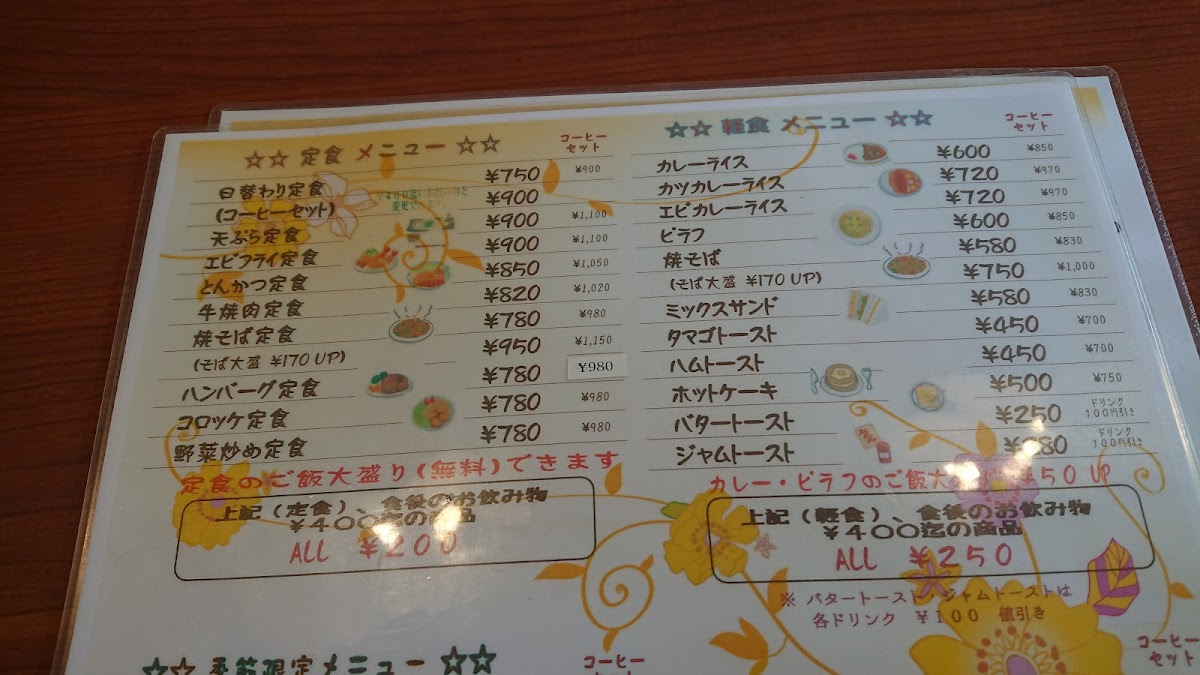 ☆☆ 定食 メニュー ☆☆ コーヒーセット
日替わり定食 ¥750 ¥900
(コーヒーセット) ¥900
天ぷら定食 ¥900 ¥1,100
エビフライ定食 ¥900 ¥1,100
とんかつ定食 ¥850 ¥1,050
牛焼肉定食 ¥820 ¥1,020
焼そば定食 ¥780 ¥980
(そば大盛 ¥170 UP) ¥950 ¥1,150
ハンバーグ定食 ¥780 ¥980
コロッケ定食 ¥780 ¥980
野菜炒め定食 ¥780 ¥980
定食のご飯大盛り(無料)できます
上記(定食)、食後のお飲み物
¥400迄の商品
ALL ¥200
☆☆ 季節限定メニュー ☆☆ コーヒー
☆☆ 軽食 メニュー ☆☆ コーヒーセット
カレーライス ¥600 ¥850
カツカレーライス ¥720 ¥970
エビカレーライス ¥720 ¥970
ピラフ ¥600 ¥850
焼そば ¥580 ¥830
(そば大盛 ¥170 UP) ¥750 ¥1,000
ミックスサンド ¥580 ¥830
タマゴトースト ¥450 ¥700
ハムトースト ¥450 ¥700
ホットケーキ ¥500 ¥750
バタートースト ¥250 ドリンク100円引き
ジャムトースト ドリンク100円引き
カレー・ピラフのご飯大 ¥50 UP
上記(軽食)、食後のお飲み物
¥400迄の商品
ALL ¥250
※ バタートースト、ジャムトーストは
各ドリンク ¥100 値引き
コーヒーセット